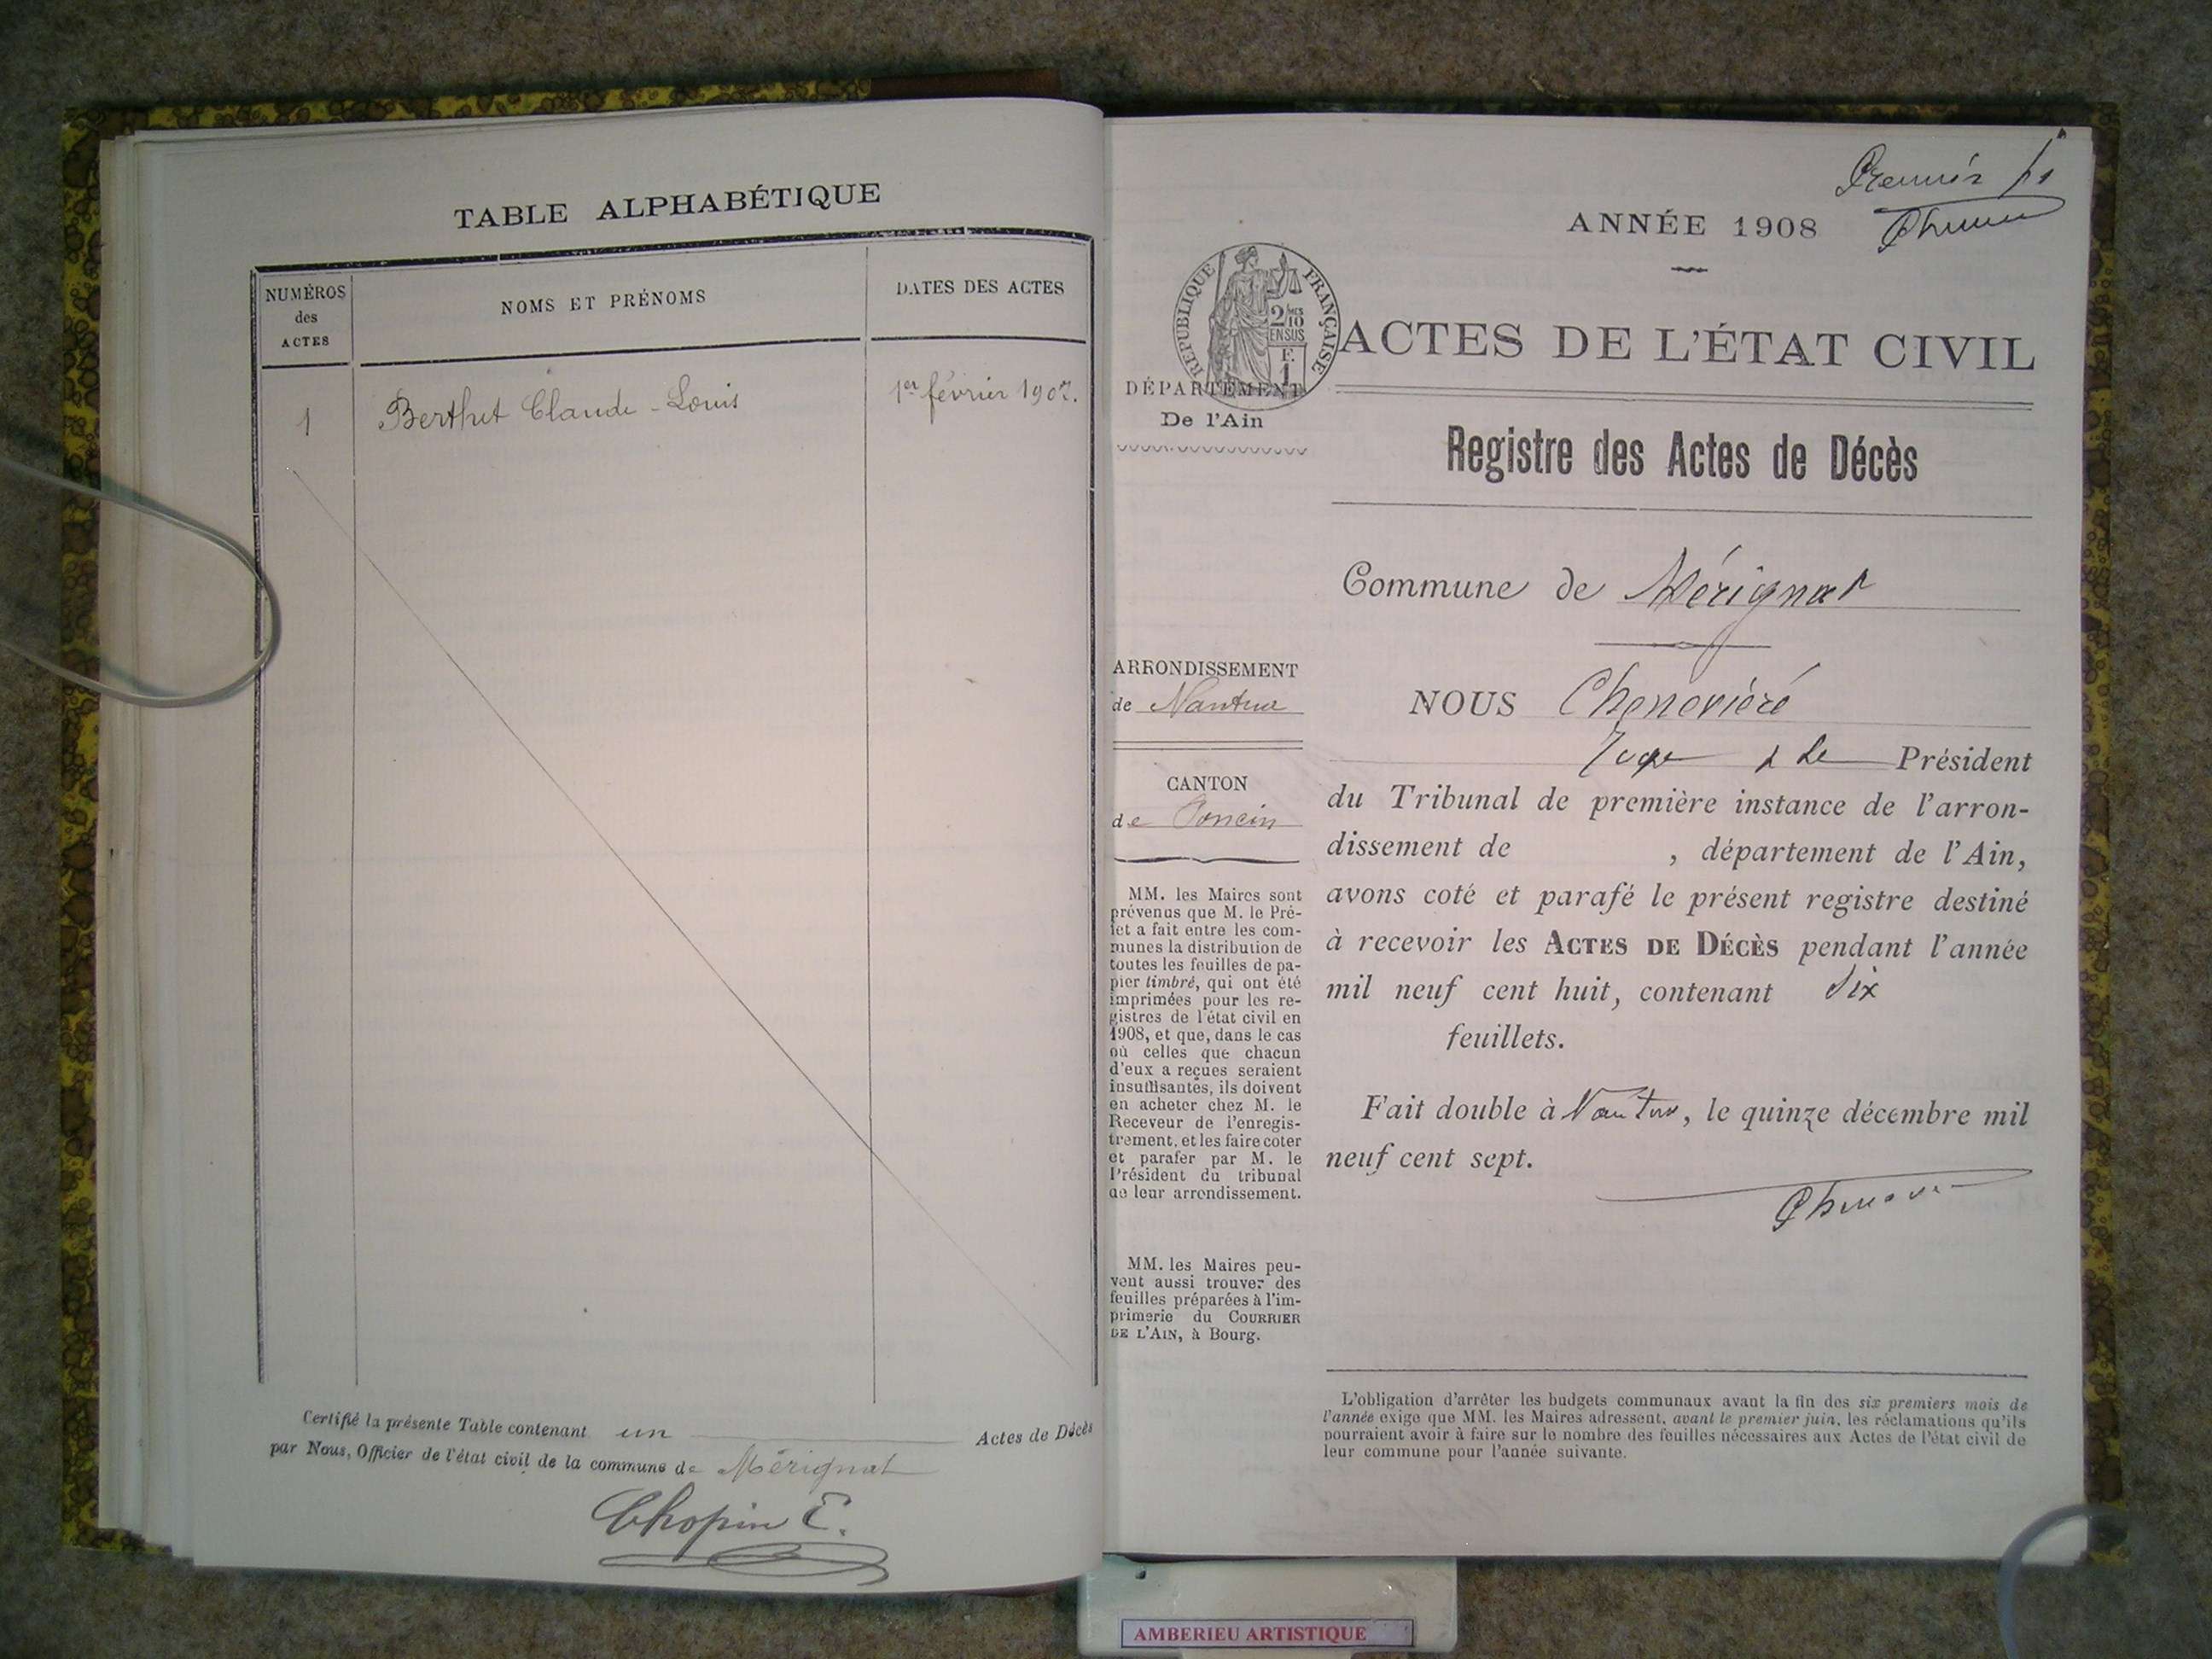 TABLE ALPHABÉTIQUE
NUMÉROS
des
ACTES
NOMS ET PRÉNOMS
DATES DES ACTES
1
Berthet Claude-Louis
1er février 1907.
Certifié la présente Table contenant un Actes de Décès
par Nous, Officier de l'état civil de la commune de Mérignat
Chopin E.
Premier
ANNÉE 1908
RÉPUBLIQUE FRANÇAISE
2/10
EN SUS
F.
1
ACTES DE L'ÉTAT CIVIL
DÉPARTEMENT
De l'Ain
Registre des Actes de Décès
Commune de Mérignat
ARRONDISSEMENT
de Nantua
CANTON
de Poncin
MM. les Maires sont
prévenus que M. le Pré-
fet a fait entre les com-
munes la distribution de
toutes les feuilles de pa-
pier timbré, qui ont été
imprimées pour les re-
gistres de l'état civil en
1908, et que, dans le cas
où celles que chacun
d'eux a reçues seraient
insuffisantes, ils doivent
en acheter chez M. le
Receveur de l'enregis-
trement, et les faire coter
et parafer par M. le
Président du tribunal
de leur arrondissement.
MM. les Maires peu-
vent aussi trouver des
feuilles préparées à l'im-
primerie du COURRIER
DE L'AIN, à Bourg.
NOUS Chenevière
Juge Président
du Tribunal de première instance de l'arron-
dissement de , département de l'Ain,
avons coté et parafé le présent registre destiné
à recevoir les ACTES DE DÉCÈS pendant l'année
mil neuf cent huit, contenant six
feuillets.
Fait double à Nantua, le quinze décembre mil
neuf cent sept.
L'obligation d'arrêter les budgets communaux avant la fin des six premiers mois de
l'année exige que MM. les Maires adressent, avant le premier juin, les réclamations qu'ils
pourraient avoir à faire sur le nombre des feuilles nécessaires aux Actes de l'état civil de
leur commune pour l'année suivante.
AMBERIEU ARTISTIQUE